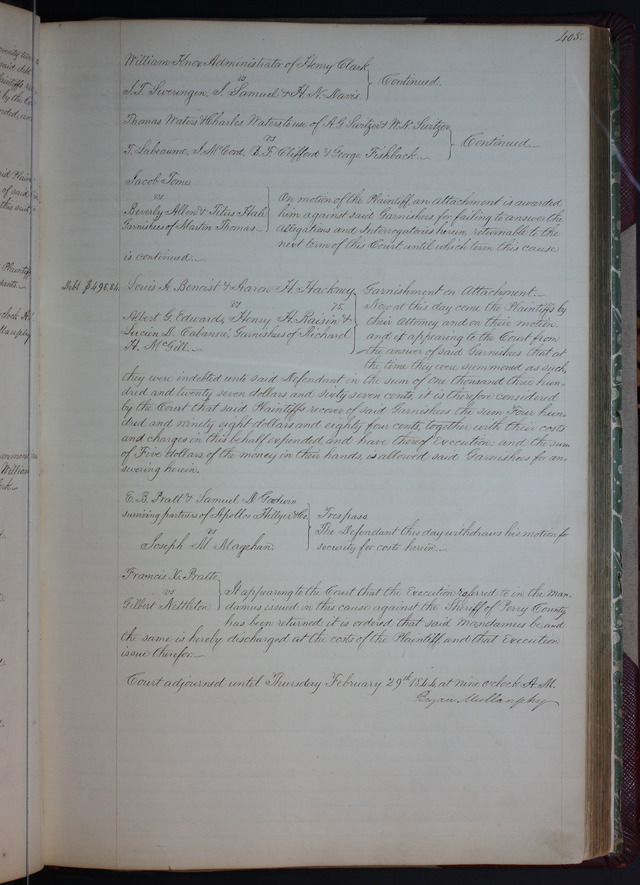 405.
William Knox Administrator of Henry Clark
vs
S. T. Sweringen, S. Samuel & H. N. Davis. Continued.
Thomas Waters & Charles Waters to use of A G Switzer & W. N. Switzer
vs
T. Labeaume, J. McCord, A. F. Clifford & George Fishback. Continued.
Jacob Tome
vs
Beverly Allen & Titus Hale
Garnishees of Martin Thomas
On motion of the Plaintiff, an attachment is awarded
him against said Garnishees for failing to answer the
allegations and Interrogatories herein, returnable to the
next term of this Court until which term this cause
is continued.
Debt $498.84.
Louis A. Benoist & Aaron H. Hackney
vs 15.
Albert G. Edwards, Henry H. Raisin &
Lucien D. Cabanne, Garnishees of Richard
H. McGill.
Garnishment on Attachment.
Now at this day come the Plaintiffs by
their Attorney and on their motion
and it appearing to the Court from
the answer of said Garnishees that at
the time they were summoned as such,
they were indebted unto said Defendant in the sum of One thousand three hun-
dred and twenty seven dollars and sixty seven cents, it is therefore considered
by the Court that said Plaintiffs recover of said Garnishees the sum Four hun-
dred and ninety eight dollars and eighty four cents, together with their costs
and charges in this behalf expended and have thereof Execution; and the sum
of Five dollars of the money in their hands, is allowed said Garnishees for an-
swering herein.
E. B. Pratt & Samuel D. Godwin
surviving partners of Apollos Hillyer & Co.
vs
Joseph M. Magehan.
Trespass
The Defendant this day withdraws his motion for
security for costs herein.
Francis X. Pratte
vs
Gilbert Nettleton
It appearing to the Court that the Execution referred to in the Man-
damus issued in this cause against the Sheriff of Perry County
has been returned, it is ordered that said Mandamus be and
the same is hereby discharged at the costs of the Plaintiff and that Execution
issue therefor.
Court adjourned until Thursday February 29th 1844, at nine o'clock A.M.
Bryan Mullanphy